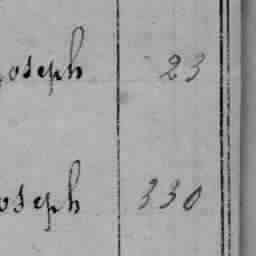 Joseph 23
Joseph 330